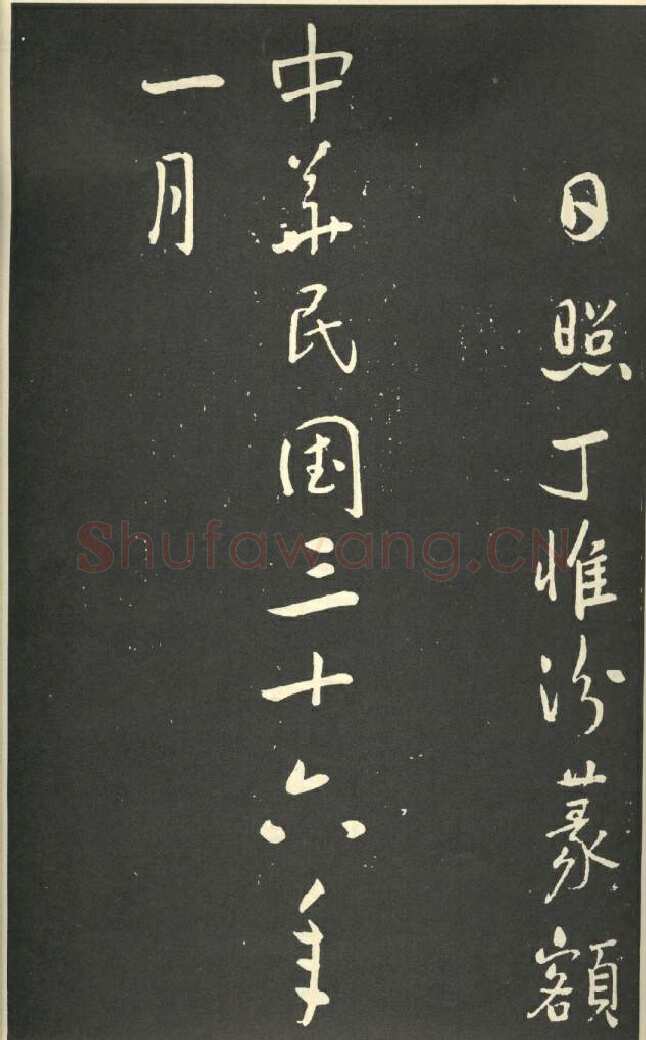 日照丁惟汾篆额
中华民国三十六年
一月
Shufawang.CN